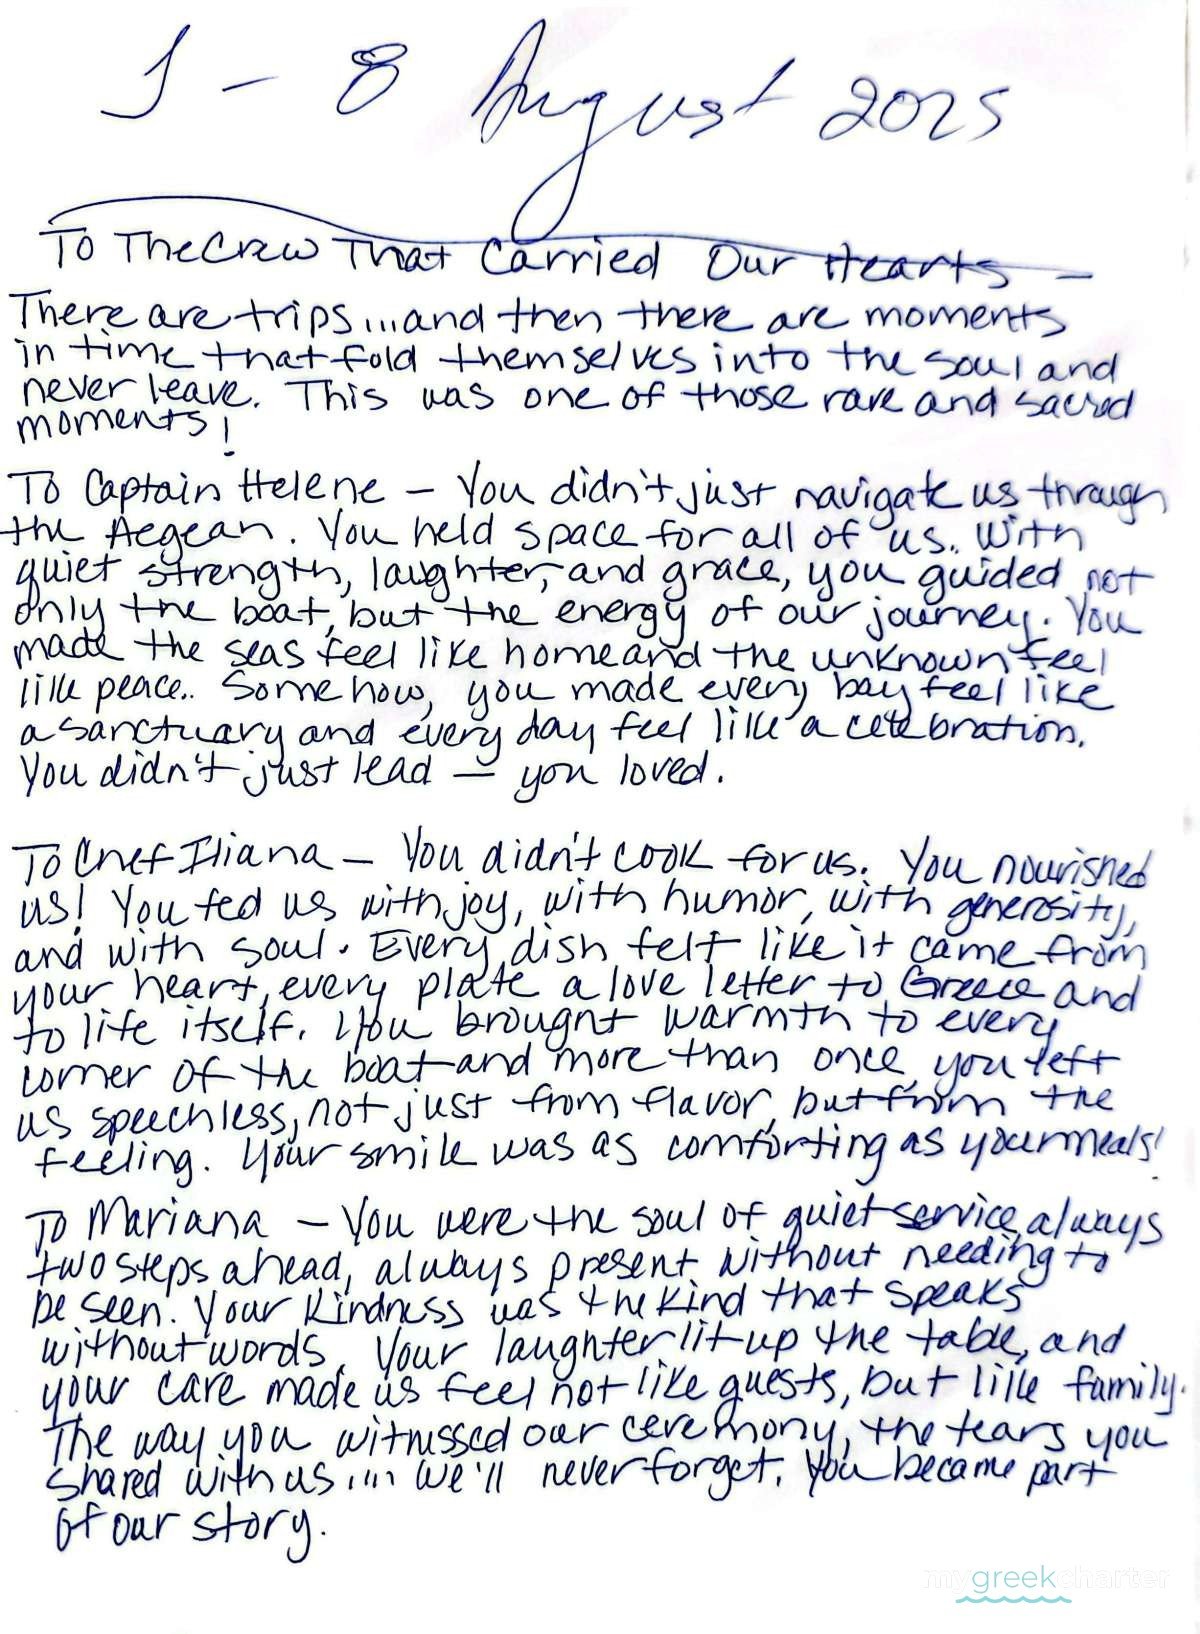 1 - 8 August 2025
To The Crew That Carried Our Hearts —
There are trips...and then there are moments
in time that fold themselves into the soul and
never leave. This was one of those rare and sacred
moments!
To Captain Helene — You didn't just navigate us through
the Aegean. You held space for all of us. With
quiet strength, laughter, and grace, you guided not
only the boat, but the energy of our journey. You
made the seas feel like home and the unknown feel
like peace.. Somehow, you made every bay feel like
a sanctuary and every day feel like a celebration.
You didn't just lead — you loved.
To Chef Iliana — You didn't cook for us. You nourished
us! You fed us with joy, with humor, with generosity,
and with soul. Every dish felt like it came from
your heart, every plate a love letter to Greece and
to life itself. You brought warmth to every
corner of the boat and more than once, you left
us speechless, not just from flavor, but from the
feeling. Your smile was as comforting as your meals!
To Mariana — You were the soul of quiet service, always
two steps ahead, always present without needing to
be seen. Your kindness was the kind that speaks
without words. Your laughter lit up the table, and
your care made us feel not like guests, but like family.
The way you witnessed our ceremony, the tears you
shared with us .... we'll never forget. You became part
of our story.
mygreekcharter